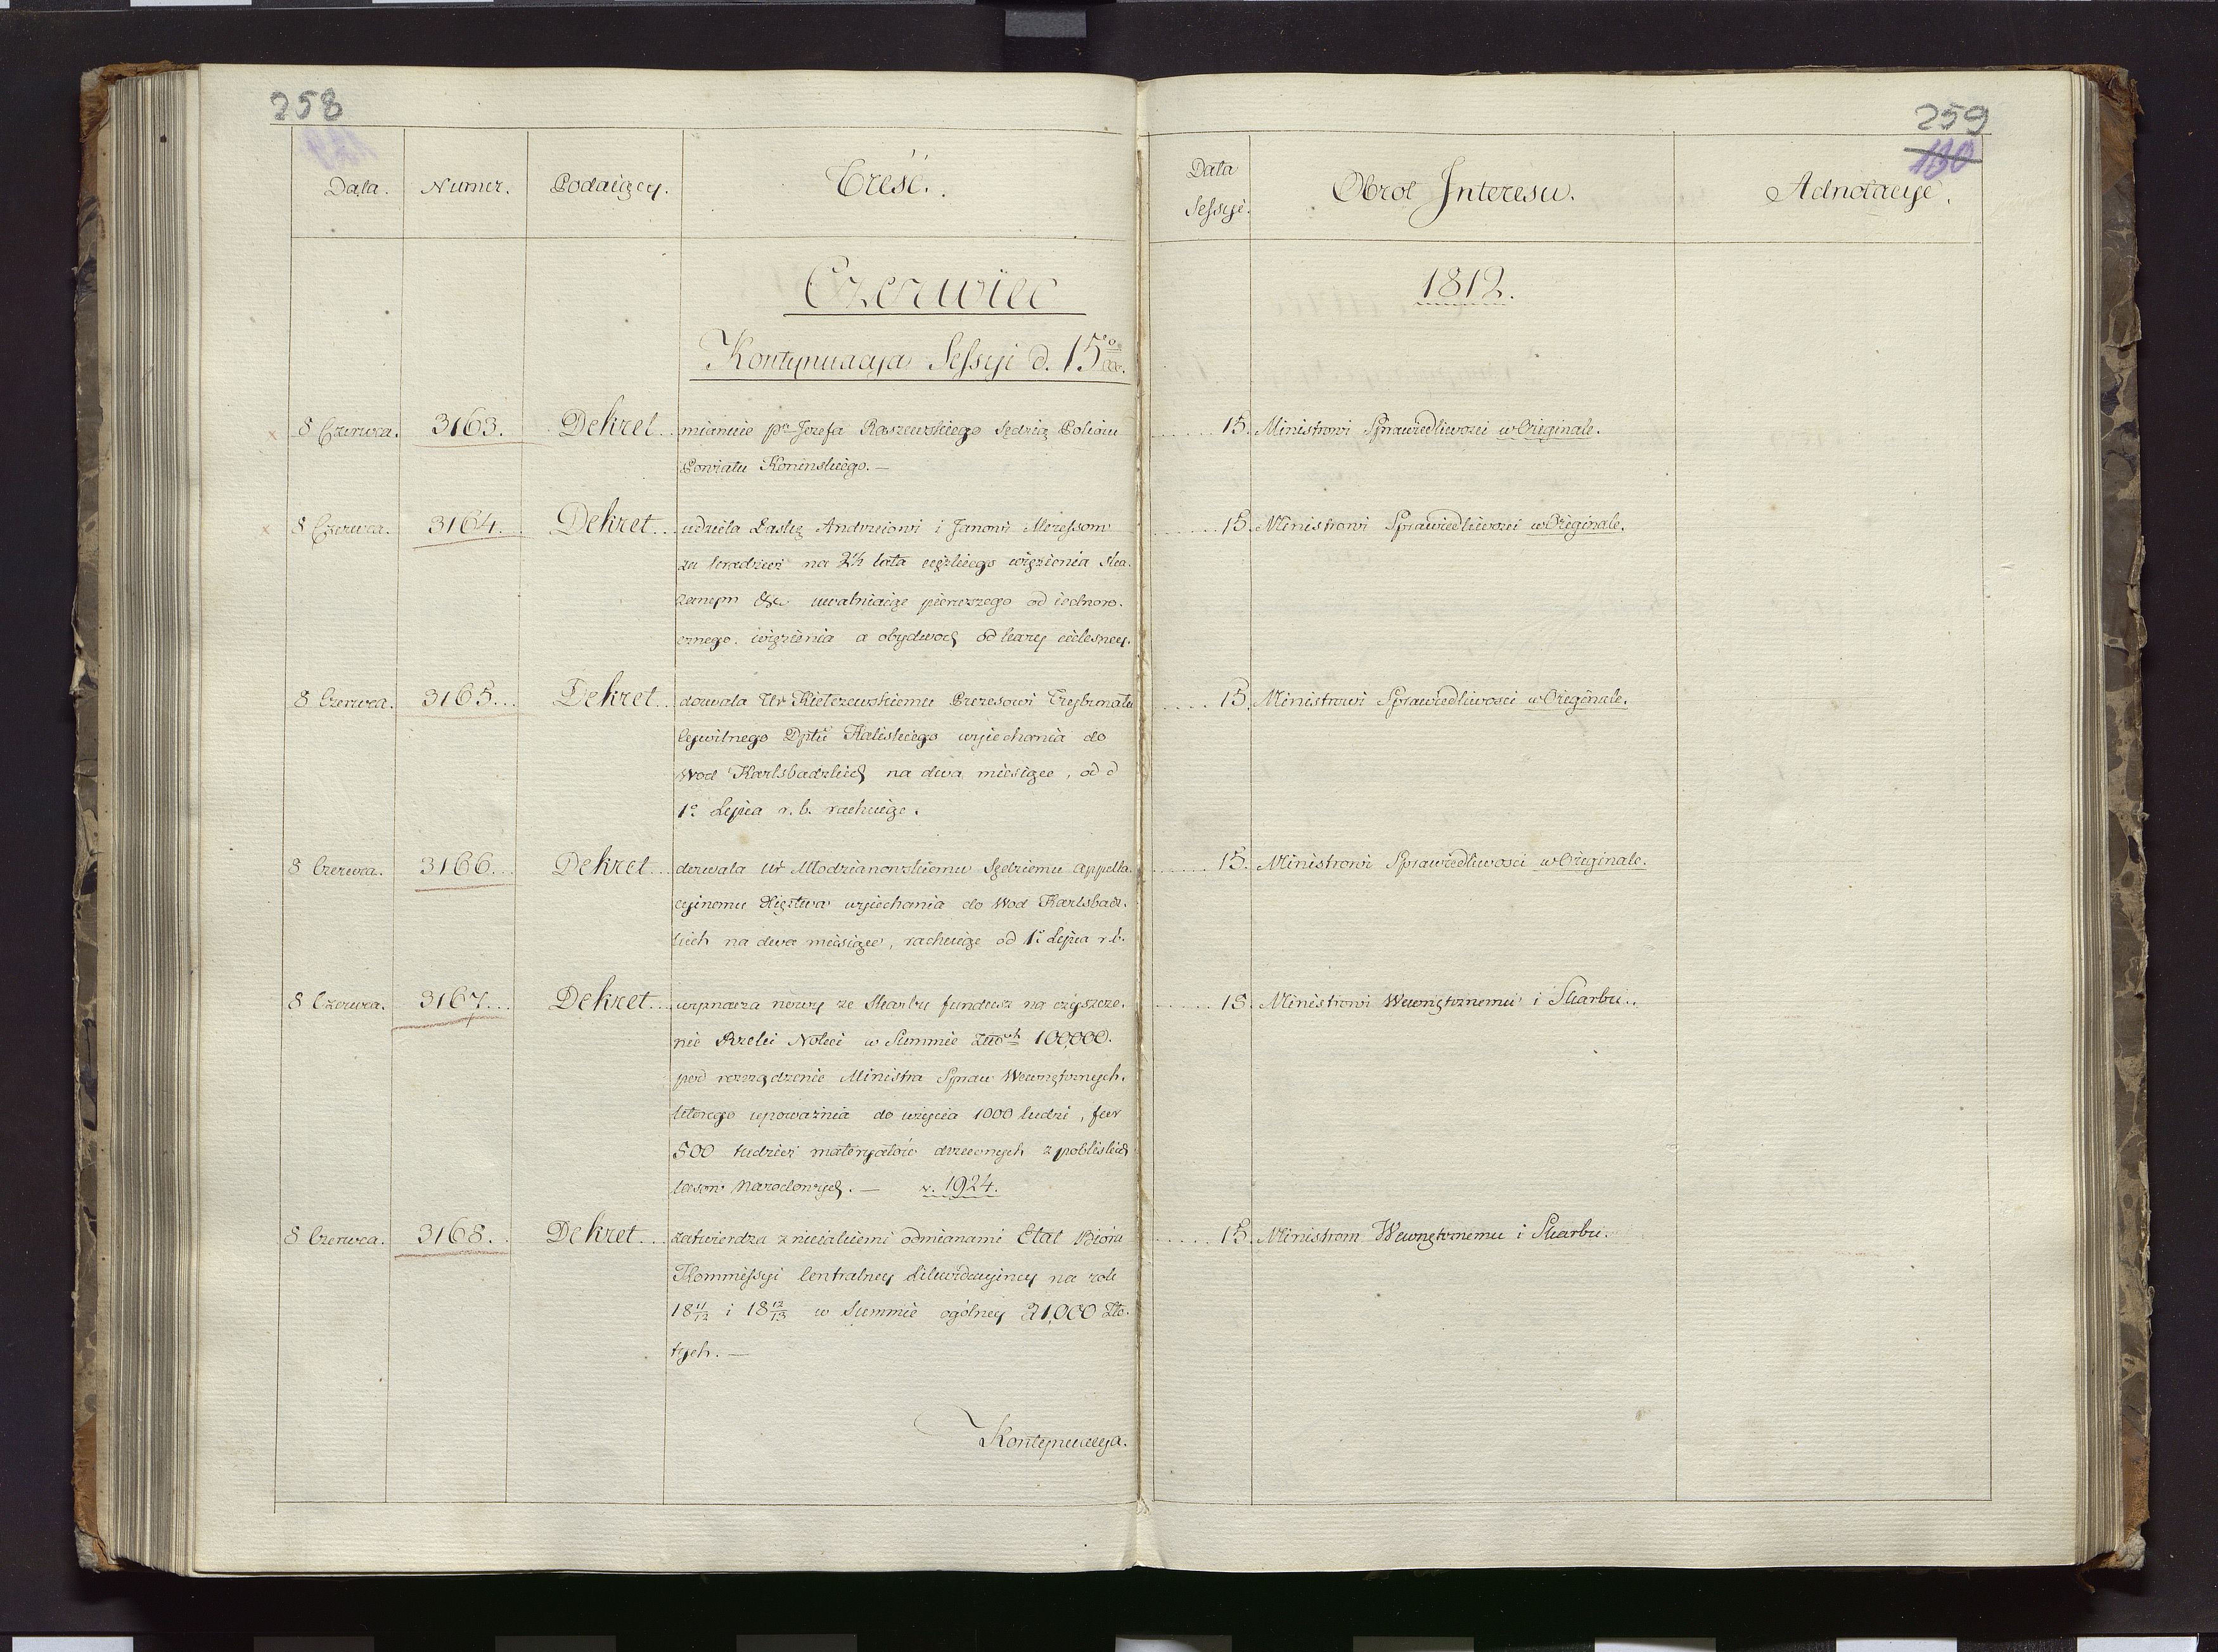 258
Data.
Numer.
Podaiący.
Treść.
Czerwiec
Kontynuacya Sessyi d. 15go
8 Czerwca. 3163. Dekret mianuie pa Jozefa Raszewskiego Sędzią Pokoiu
Powiatu Koninskiego. —
8 Czerwca. 3164. Dekret udziela Łaskę Andrzeiowi i Janowi
za kradzież na 2½ lata cięzkiego więzienia ska-
zanym &c uwalniaiąc pierwszego od iednoro-
cznego więzienia a obydwoch od kary cielesney.
8 Czerwca. 3165. Dekret dozwala Ur Kiełczewskiemu Prezesowi Trybunału
Cywilnego Dptu Kaliskiego wyiechania do
Wod Karlsbadzkich na dwa miesiące, od d
1o Lipca r. b. rachuiąc.
8 Czerwca. 3166. Dekret dozwala Ur Młodzianowskiemu Sędziemu Appella-
cyinemu Xięztwa wyiechania do Wod Karlsbadz-
kich na dwa miesiące, rachuiąc od 1o Lipca r. b.
8 Czerwca. 3167. Dekret wyznacza nowy ze Skarbu fundusz na czyszcze-
nie Rzeki Noteci w Summie Złotch 100,000.
pod rozrządzenie Ministra Spraw Wewnętrznych.
ktorego upoważnia do użycia 1000 ludzi, fur
500 tudzież materyałów drzewnych z pobliskich
lasow Narodowych. — v. 1924.
8 Czerwca. 3168. Dekret zatwierdza z nieiakiemi odmianami Etat Biora
Kommissyi Centralney Likwidacyiney na rok
18 11/12 i 18 12/13 w Summie ogólney 21,000 Zło-
tych. —
Kontynuacya.
259
130
Data
Sessyi.
Obrot Interesu.
Adnotacye.
1812.
15. Ministrowi Sprawiedliwosci w Oryginale.
15. Ministrowi Sprawiedliwosci w Oryginale.
15. Ministrowi Sprawiedliwosci w Oryginale.
15. Ministrowi Sprawiedliwosci w Oryginale.
15. Ministrowi Wewnętrznemu i Skarbu.
15. Ministrom Wewnętrznemu i Skarbu.